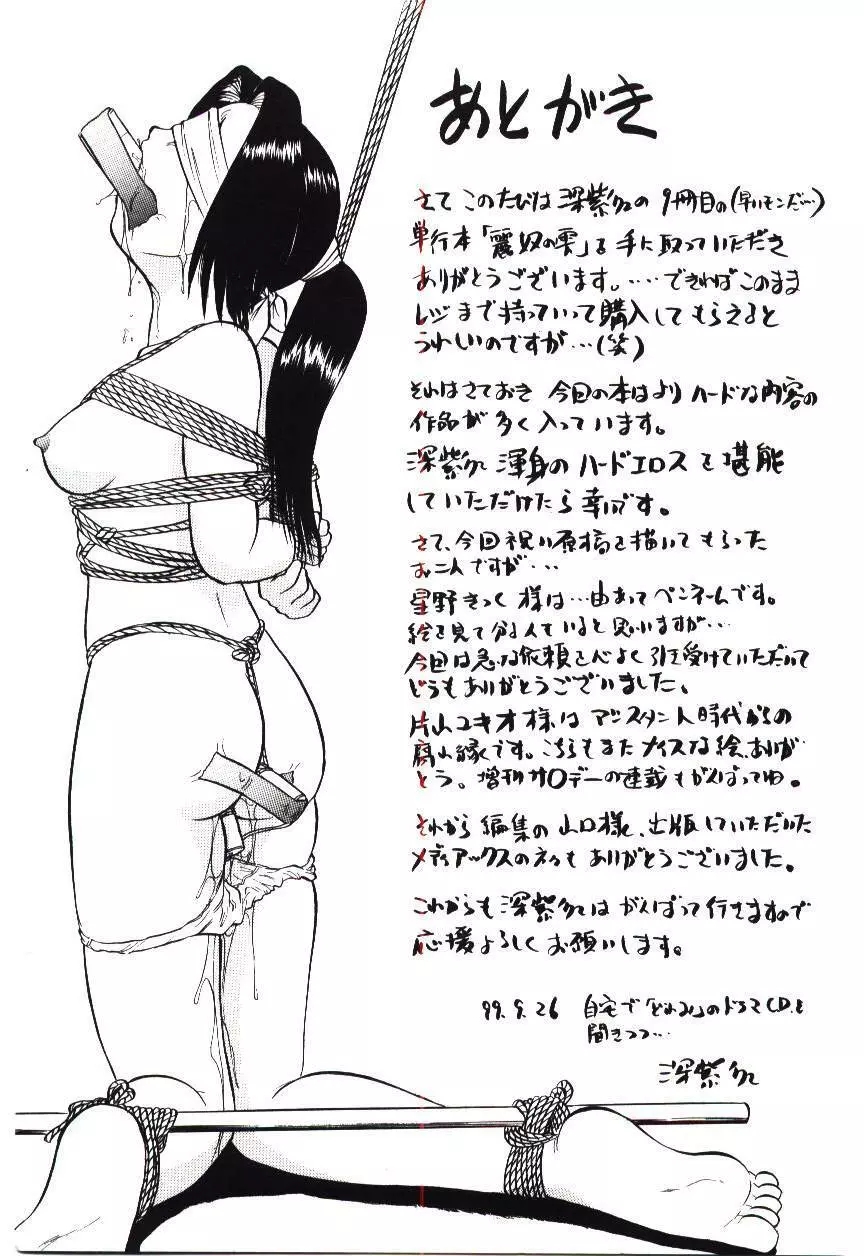 あとがき
さて このたびは 深紫の 9冊目の(早いモンだ…)
単行本「麗奴の雫」を 手に取っていただき
ありがとうございます。……できればこのまま
レジまで持っていって購入してもらえると
うれしいのですが…(笑)
それはさておき 今回の本はより ハードな内容の
作品が 多く入っています。
深紫 渾身の ハードエロス を 堪能
していただけたら 幸いです。
さて、今回祝い原稿を描いてもらった
お二人ですが…
星野 様は…由あってペンネームです。
絵を見て分る人もいると思いますが…
今回は急な依頼を心よく引き受けていただいて
どうもありがとうございました。
片山ユキオ様は アシスタント時代からの
腐れ縁です。こちらもまた ナイスな絵、ありが
とう。増刊サ〇デーの連載もがんばってね。
それから 編集の 山口様、出版していただいた
メディアックスの もありがとうございました。
これからも 深紫 は がんばって行きますので
応援よろしくお願いします。
99.9.26 自宅で のドラマCDを
聞きつつ…
深紫